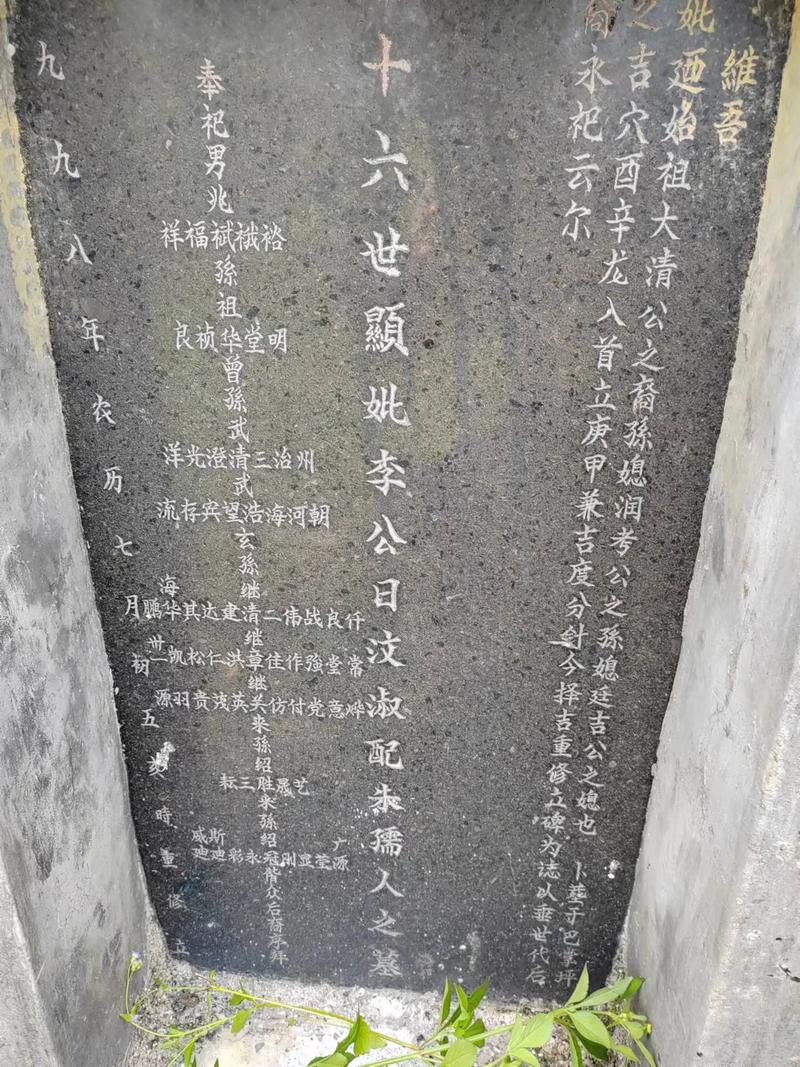 維吾
妣迺始祖大清公之裔孫媳润考公之孫媳廷吉公之媳也 卜塟于巴掌坪
之吉穴酉辛龙入首立庚甲兼吉度分針今择吉重修立碑为誌以垂世代后
裔永祀云尔
十六世顯妣李公日汶淑配朱孺人之墓
奉祀男兆
裕祴斌福祥
孫祖
明堂华祯良
曾孫武
州治三清澄光洋
武
朝河海浩望宾存流
玄孫继
海
仟良战伟二清建达其华鹏
继
常堂強作佳章洪仁松凯
继
烨意党付仿关英贵羽源
来孫绍
艺晟三胜耘
来孫绍
广源莹昱刚冠永彩迪迪
斯威
偕众后裔拜
九九八年农历七月初五亥時重修立